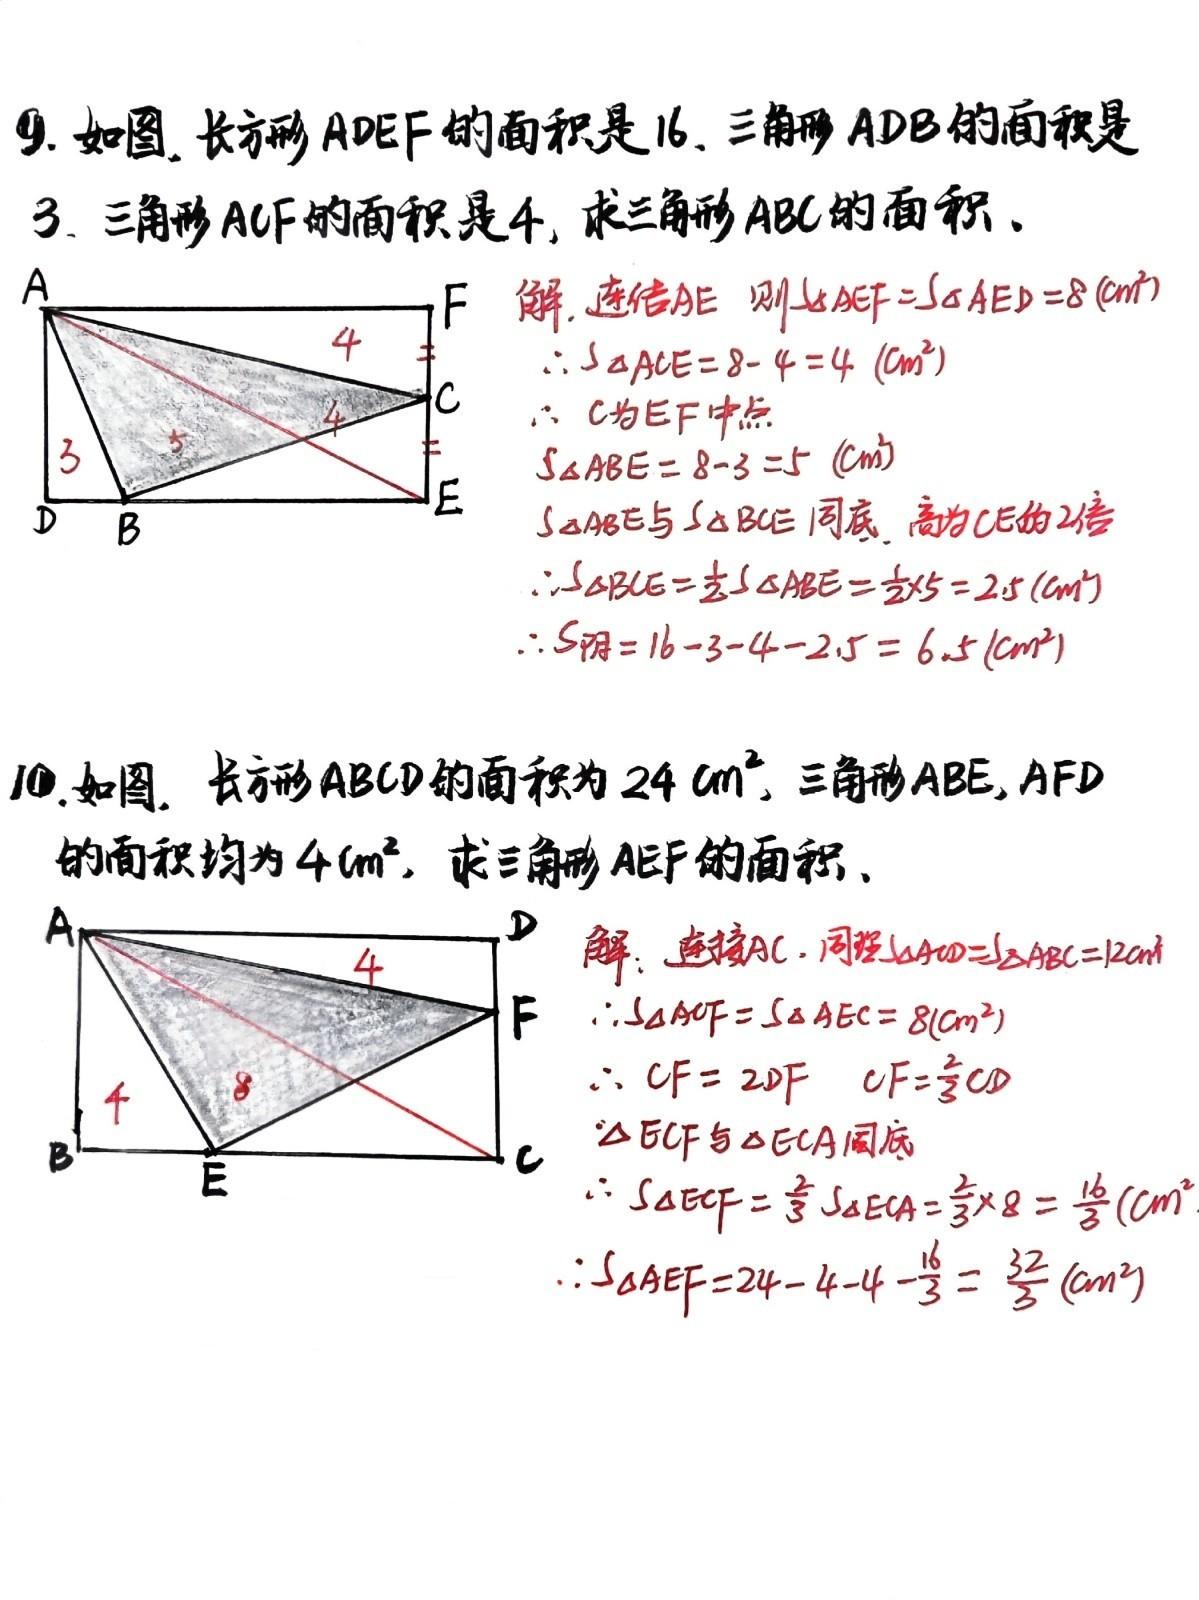 9. 如图、长方形ADEF的面积是16、三角形ADB的面积是
3、三角形ACF的面积是4，求三角形ABC的面积．
A
F
4
C
4
5
3
D
B
E
解、连结AE 则S△AEF=S△AED=8(cm²)
∴S△ACE=8-4=4 (cm²)
∴ C为EF中点
S△ABE=8-3=5 (cm²)
S△ABE与S△BCE同底、高为CE的2倍
∴S△BCE=½S△ABE=½×5=2.5(cm²)
∴S阴=16-3-4-2.5=6.5(cm²)
10.如图、长方形ABCD的面积为24cm²、三角形ABE，AFD
的面积均为4cm²，求三角形AEF的面积、
A
D
4
F
8
4
B
E
C
解：连接AC．同理S△ACD=S△ABC=12cm²
∴S△ACF=S△AEC=8(cm²)
∴ CF=2DF CF=⅔CD
∵△ECF与△ECA同底
∴ S△ECF=⅔S△ECA=⅔×8=16/3(cm²
∴S△AEF=24-4-4-16/3=32/3(cm²)